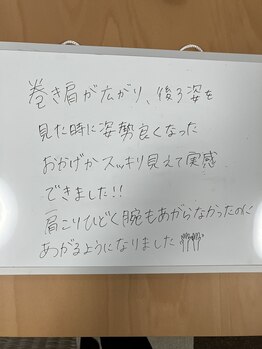 巻き肩が広がり、後ろ姿を
見た時に姿勢良くなった
おかげかスッキリ見えて実感
できました!!
肩こりひどく腕もあがらなかったのに
あがるようになりました